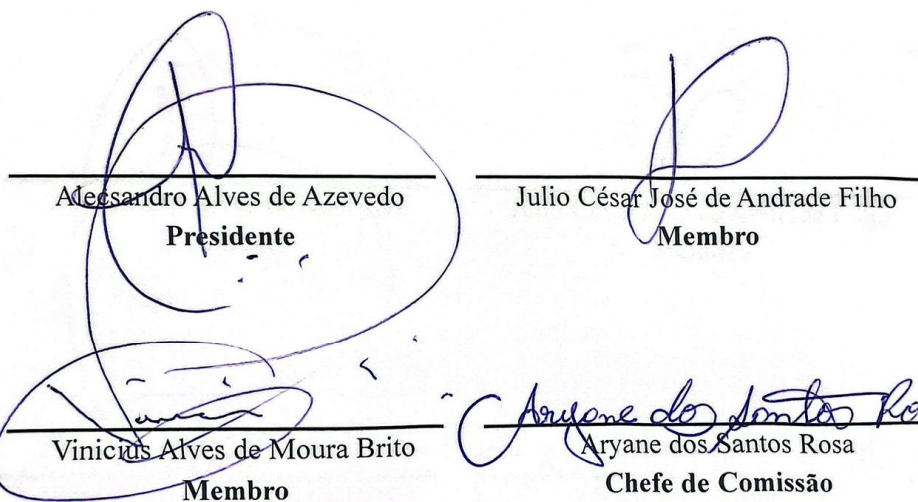 Alecsandro Alves de Azevedo
Presidente
Julio César José de Andrade Filho
Membro
Vinicius Alves de Moura Brito
Membro
Aryane dos Santos Ro
Aryane dos Santos Rosa
Chefe de Comissão